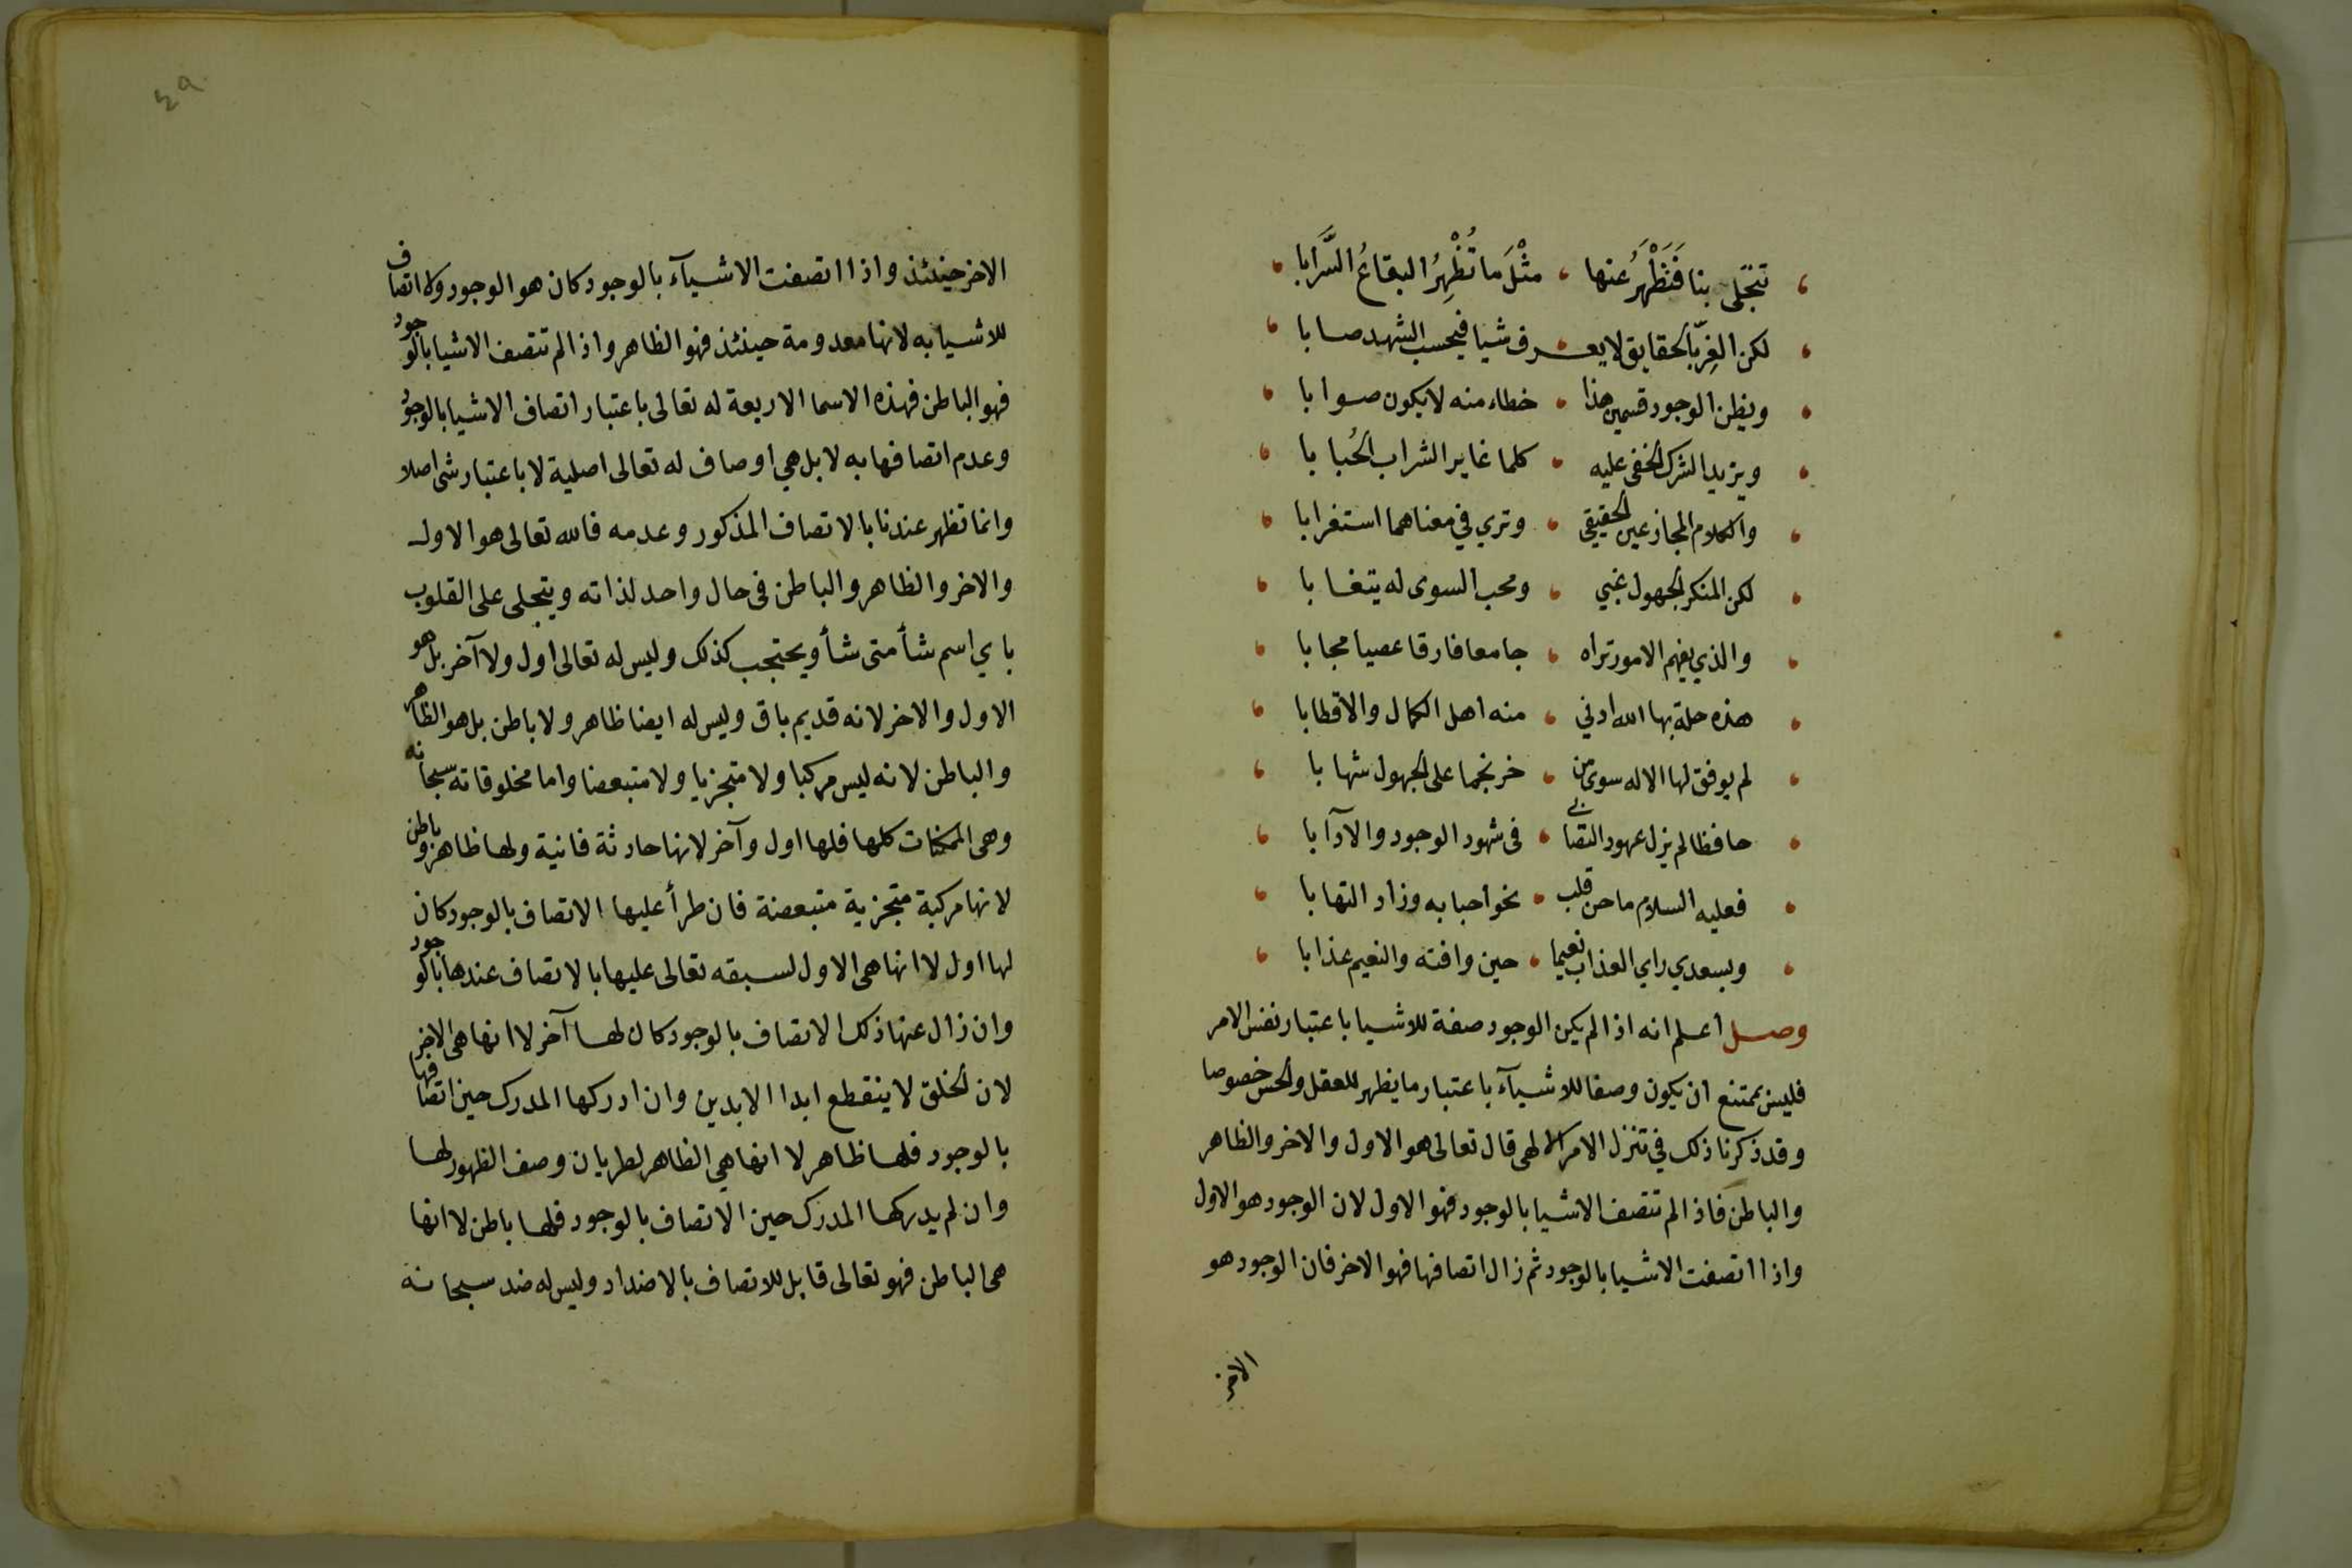 تتجلى بنا فَنَظْهَرُ عنها ، مثْلَ ما تُظْهِرُ البقاعُ السَّرَابا
لكن الغِرّ بالحقايق لا يعرف شيا فيحسب الشهد صابا
ويظن الوجود قسمين هذا ، خطاء منه لا يكون صوابا
ويزيد الشرك الخفى عليه ، كلما غاير الشراب الحُبابا
والكلام المجاز عين الحقيقي ، وتري في معناهما استغرابا
لكن المنكر الجهول غبي ، ومحب السوى له يتغابا
والذي يفهم الامور تراه ، جامعا فارقا عصيا مجابا
هذه حلة بها الله ادني ، منه اهل الكمال والاقطابا
لم يوفق لها الاله سوى من ، خر نجما على الجهول شهابا
حافظا لم يزل عهود التصابي ، فى شهود الوجود والآدابا
فعليه السلام ما حن قلب ، نحو احبابه وزاد التهابا
وبسعدي راي العذاب نعيما ، حين وافته والنعيم عذابا
وصل اعلم انه اذا لم يكن الوجود صفة للاشيا باعتبار نفس الامر
فليس بممتنع ان يكون وصفا للاشيآء باعتبار ما يظهر للعقل والحس خصوصا
وقد ذكرنا ذلك في تنزل الامر الالهى قال تعالى هو الاول والاخر والظاهر
والباطن فاذا لم تتصف الاشيا بالوجود فهو الاول لان الوجود هو الاول
واذا اتصفت الاشيا بالوجود ثم زال اتصافها فهو الاخر فان الوجود هو
الاخر
٤٩
الاخر حينئذ واذا اتصفت الاشيآء بالوجود كان هو الوجود ولا اتصاف
للاشيا به لانها معدومة حينئذ فهو الظاهر واذا لم تتصف الاشيا بالوجود
فهو الباطن فهذه الاسما الاربعة له تعالى باعتبار اتصاف الاشيا بالوجود
وعدم اتصافها به لا بل هي اوصاف له تعالى اصلية لا باعتبار شى اصلا
وانما تظهر عندنا بالاتصاف المذكور وعدمه فالله تعالى هو الاول
والاخر والظاهر والباطن فى حال واحد لذاته ويتجلى على القلوب
باي اسم شأ متى شأ ويحتجب كذلك وليس له تعالى اول ولا آخر بل هو
الاول والاخر لانه قديم باق وليس له ايضا ظاهر ولا باطن بل هو الظاهر
والباطن لانه ليس مركبا ولا متجزيا ولا متبعضا واما مخلوقاته سبحانه
وهى الممكنات كلها فلها اول وآخر لانها حادثة فانية ولها ظاهر وباطن
لانها مركبة متجزية متبعضة فان طرأ عليها الاتصاف بالوجود كان
لها اول لا انها هى الاول لسبقه تعالى عليها بالاتصاف عندها بالوجود
وان زال عنها ذلك الاتصاف بالوجود كان لها آخر لا انها هى الاخر
لان الخلق لا ينقطع ابدا الابدين وان ادركها المدرك حين اتصافها
بالوجود فلها ظاهر لا انها هي الظاهر لطريان وصف الظهور لها
وان لم يدركها المدرك حين الاتصاف بالوجود فلها باطن لا انها
هى الباطن فهو تعالى قابل للاتصاف بالاضداد وليس له ضد سبحانه